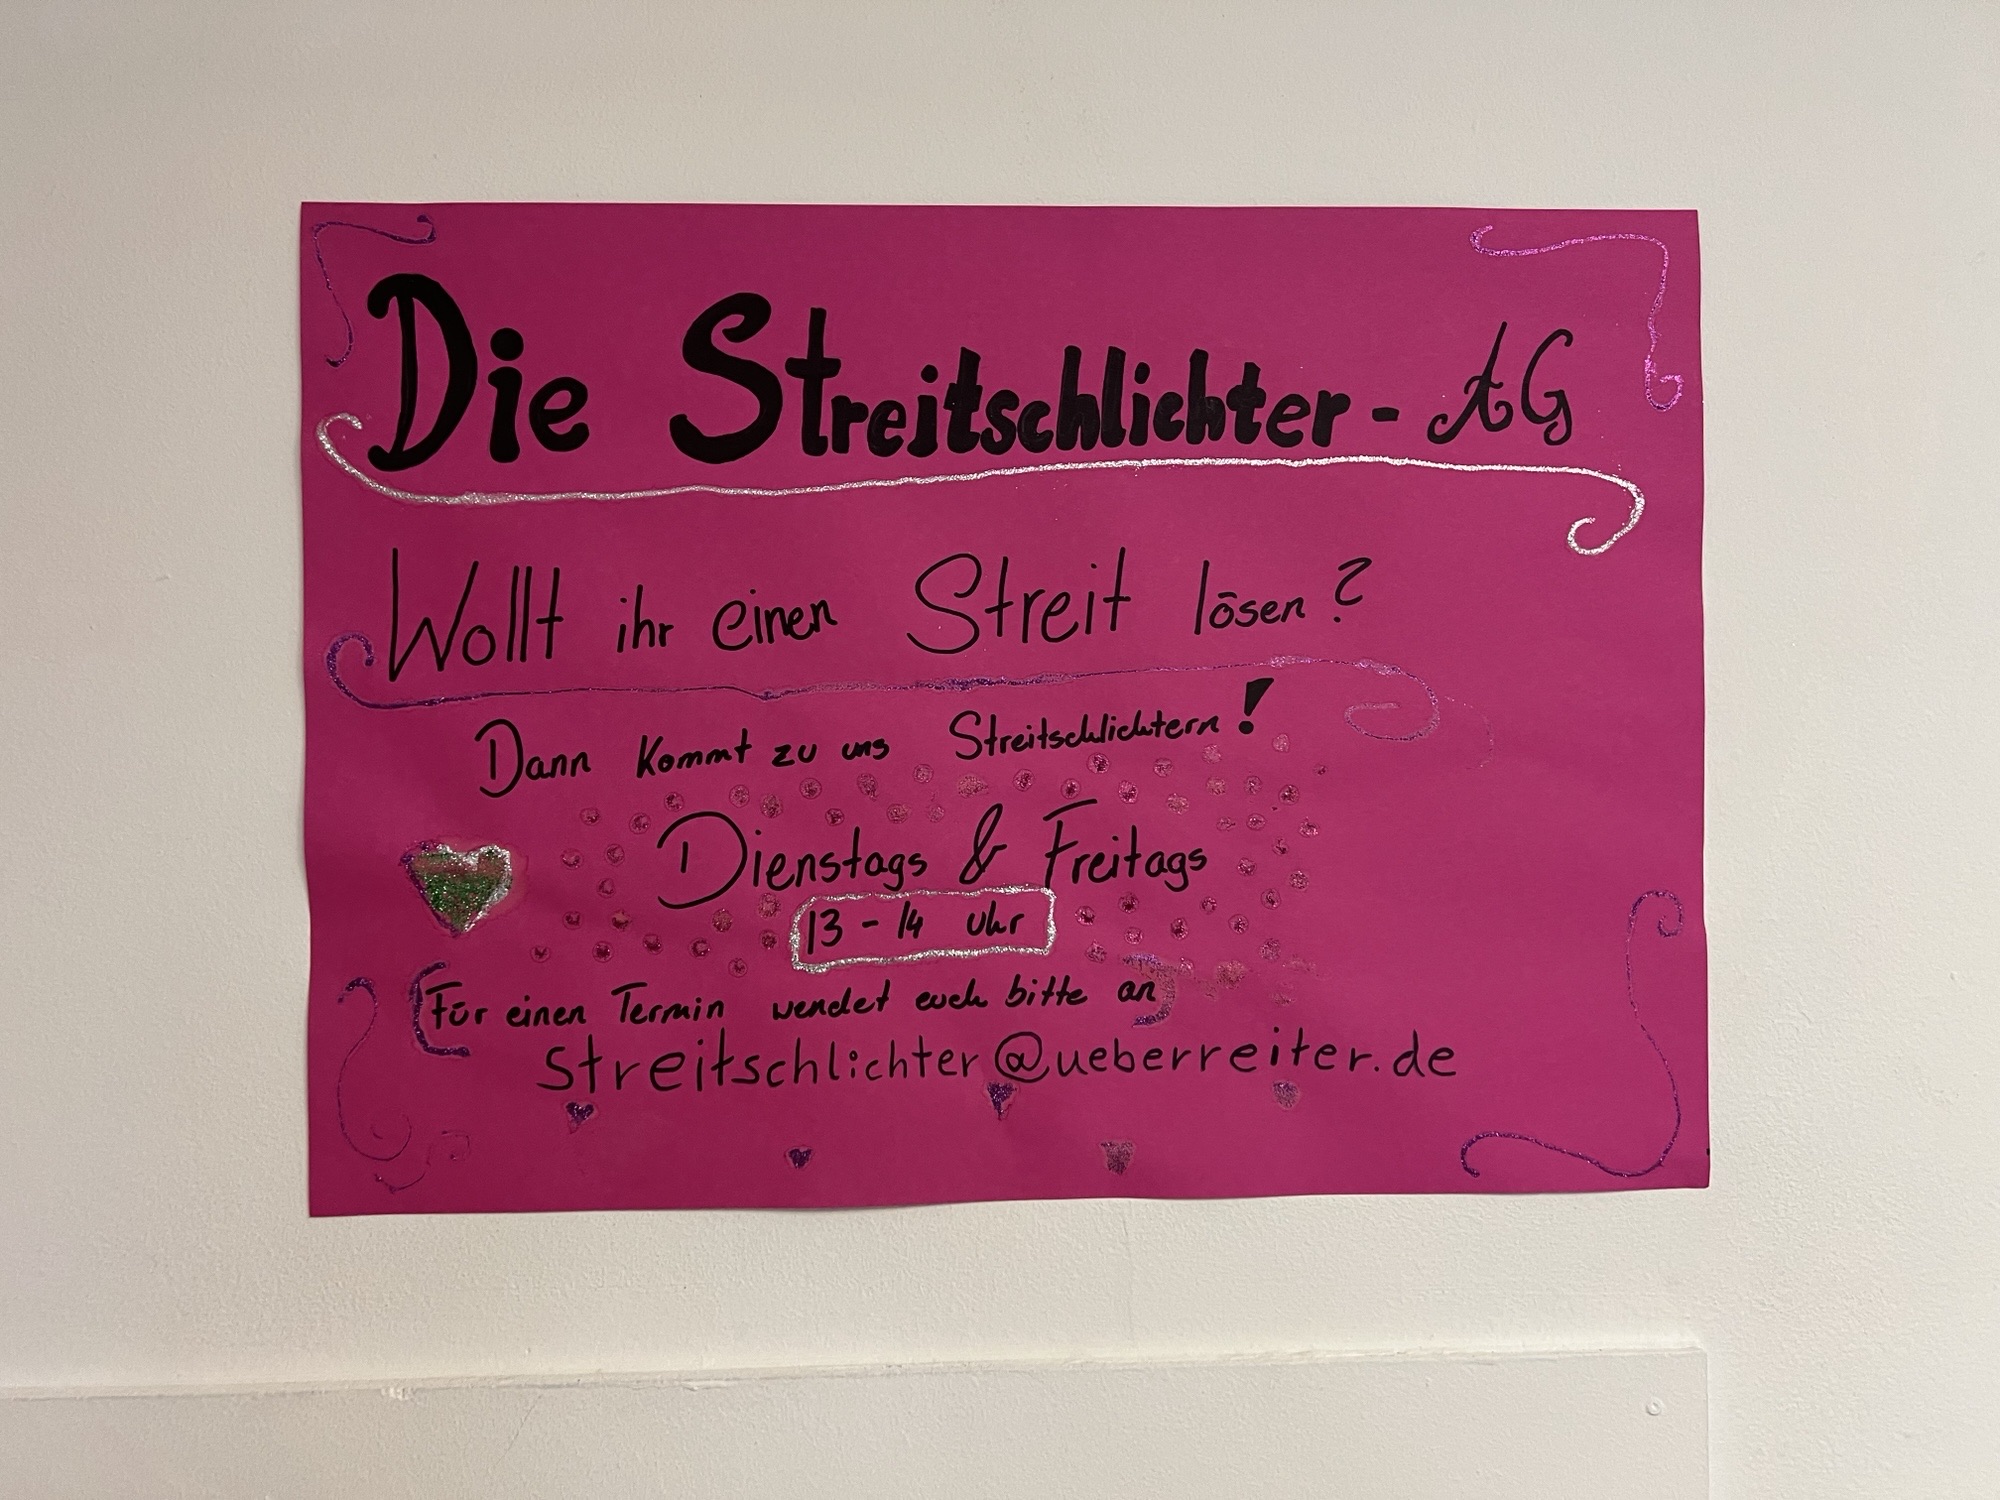 Die Streitschlichter - AG
Wollt ihr einen Streit lösen?
Dann kommt zu uns Streitschlichtern!
Dienstags & Freitags
13 - 14 Uhr
(Für einen Termin wendet euch bitte an)
streitschlichter@ueberreiter.de